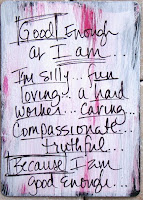 Good Enough
as I am...
I'm silly... fun
loving... a hard
worker... caring...
Compassionate...
truthful...
Because I am
good enough...